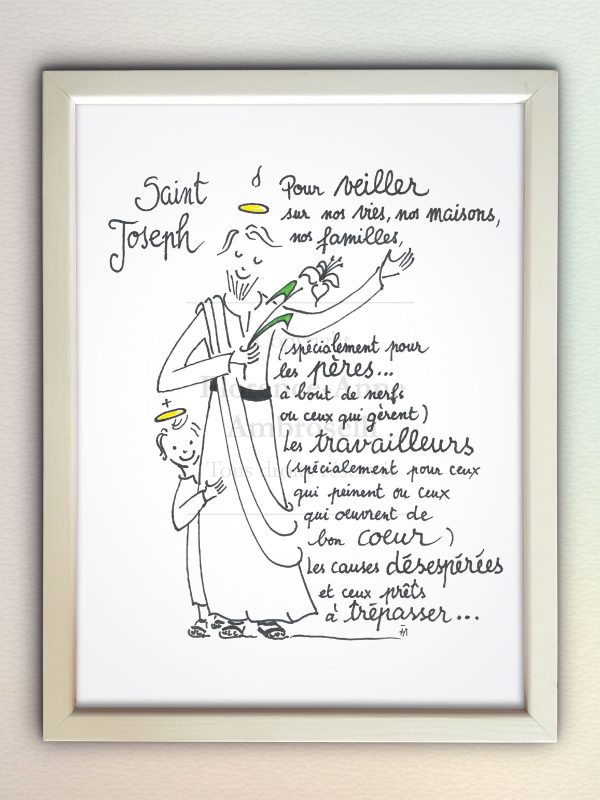 Saint
Joseph
Pour veiller
sur nos vies, nos maisons,
nos familles,
(spécialement pour
les pères...
à bout de nerfs
ou ceux qui gèrent)
Les travailleurs
(spécialement pour ceux
qui peinent ou ceux
qui œuvrent de
bon coeur)
Les causes désespérées
et ceux prêts
à trépasser...